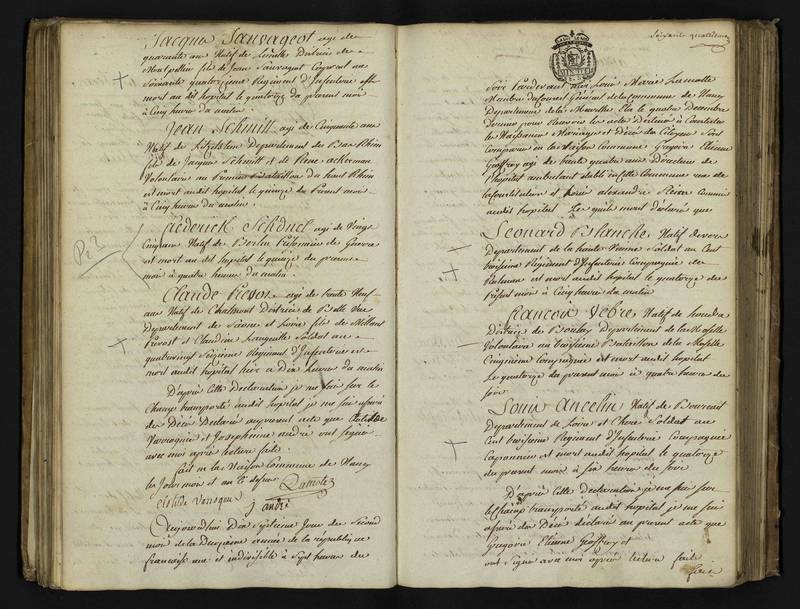 Jacque Sauvageot agé de
quarante ans Natif de District de
Montpellier fils de Jean Sauvageot
Soixante quatorzieme Regiment d'Infanterie est
mort audit hopital le quatorze du present mois
à Cinq heures du matin
Jean Schmitt agé de Cinquante ans
Natif de Departement des Bas Rhin
fils de Jacques Schmitt et de ackerman
Volontaire au Premier Bataillon du haut Rhin
est mort audit hopital le quinze du Present mois
à Cinq heures du matin
frederick Schduel agé de Vingt
Cinq ans Natif de Berlin Prisonnier de Guerre
est mort au dit hopital le quinze du present
mois à quatre heures du matin
Pr?
Claude Prevost agé de trente Neuf
ans Natif de Chalmont District de
Departement de Saone et Loire fils de
Prevost et Claudine Soldat au
quatrevingt Seizieme Regiment d'Infanterie est
mort audit hopital hier à Dix heures du matin
D'après Cette Declaration je me suis sur le
Champ transporté audit hopital je me suis assuré
du Décès Declaré au present acte que Clotilde
Varroquier et Josephine andré ont Signé
avec moi après lecture faite
fait en la Maison Commune de Nancy
les Jour mois et an Ci dessus
Clotilde
j andré
Aujourd'hui Dix Septieme Jour du Second
mois de la Deuxieme année de la republique
francoise une et indivisible à Sept heures du
Soixante quatrieme
Soir Pardevant moi Louis Marie Lamotte
Membre du Conseil Général de la Commune de Nancy
Departement de la Meurthe Elu le quatre Decembre
dernier pour Recevoir les actes Destinés à Constater
les Naissances Mariages et Décès des Citoyens Sont
Comparus en la Maison Commune Gregoire Etienne
Geoffroy agé de trente quatre ans Directeur de
l'hopital ambulant etabli en Cette Commune rue de
la Constitution et alexandre Commis
audit hopital Lesquels m'ont déclaré que
Leonard Blanche Natif
Departement de la haute Vienne Soldat au Cent
troisieme Regiment d'Infanterie Compagnie de
est mort audit hopital le quatorze du
Present mois à Cinq heures du matin
francois Vebre Natif de
District de Boulay Departement de la Moselle
Volontaire au troisieme Bataillon de la Moselle
Cinquieme Compagnie est mort audit hopital
Le quatorze du present mois à quatre heures du
soir
Louis Ancelin Natif de
Departement de Loire et Cher Soldat au
Cent troisieme Regiment d'Infanterie Compagnie
est mort audit hopital le quatorze
du present mois à Six heures du soir
D'après Cette Declaration je me suis sur
le Champ transporté audit hopital je me suis
assuré du Décès déclaré au present acte que
Gregoire Etienne Geoffroy et
ont Signé avec moi après lecture faite
fait